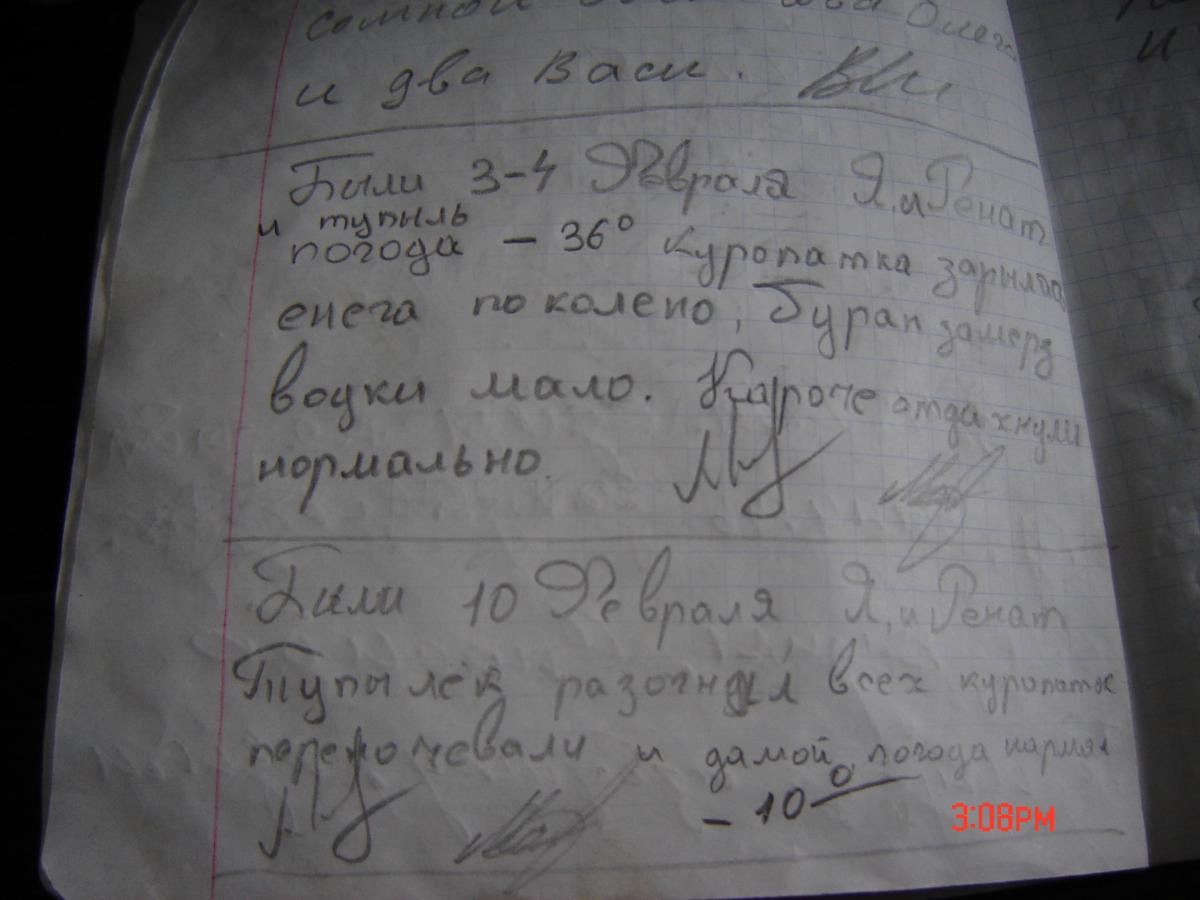 сомной два Олега
и два Васи.
Были 3-4 Февраля Я, и Ренат
и тупыль
погода - 36° куропатка зарылась
снега по колено, Буран замерз
водки мало. Кароче отдахнули
нормально.
Были 10 Февраля Я, и Ренат
Тупылёк разогнал всех куропаток
переночевали и дамой, погода нармал
- 10°
3:08PM